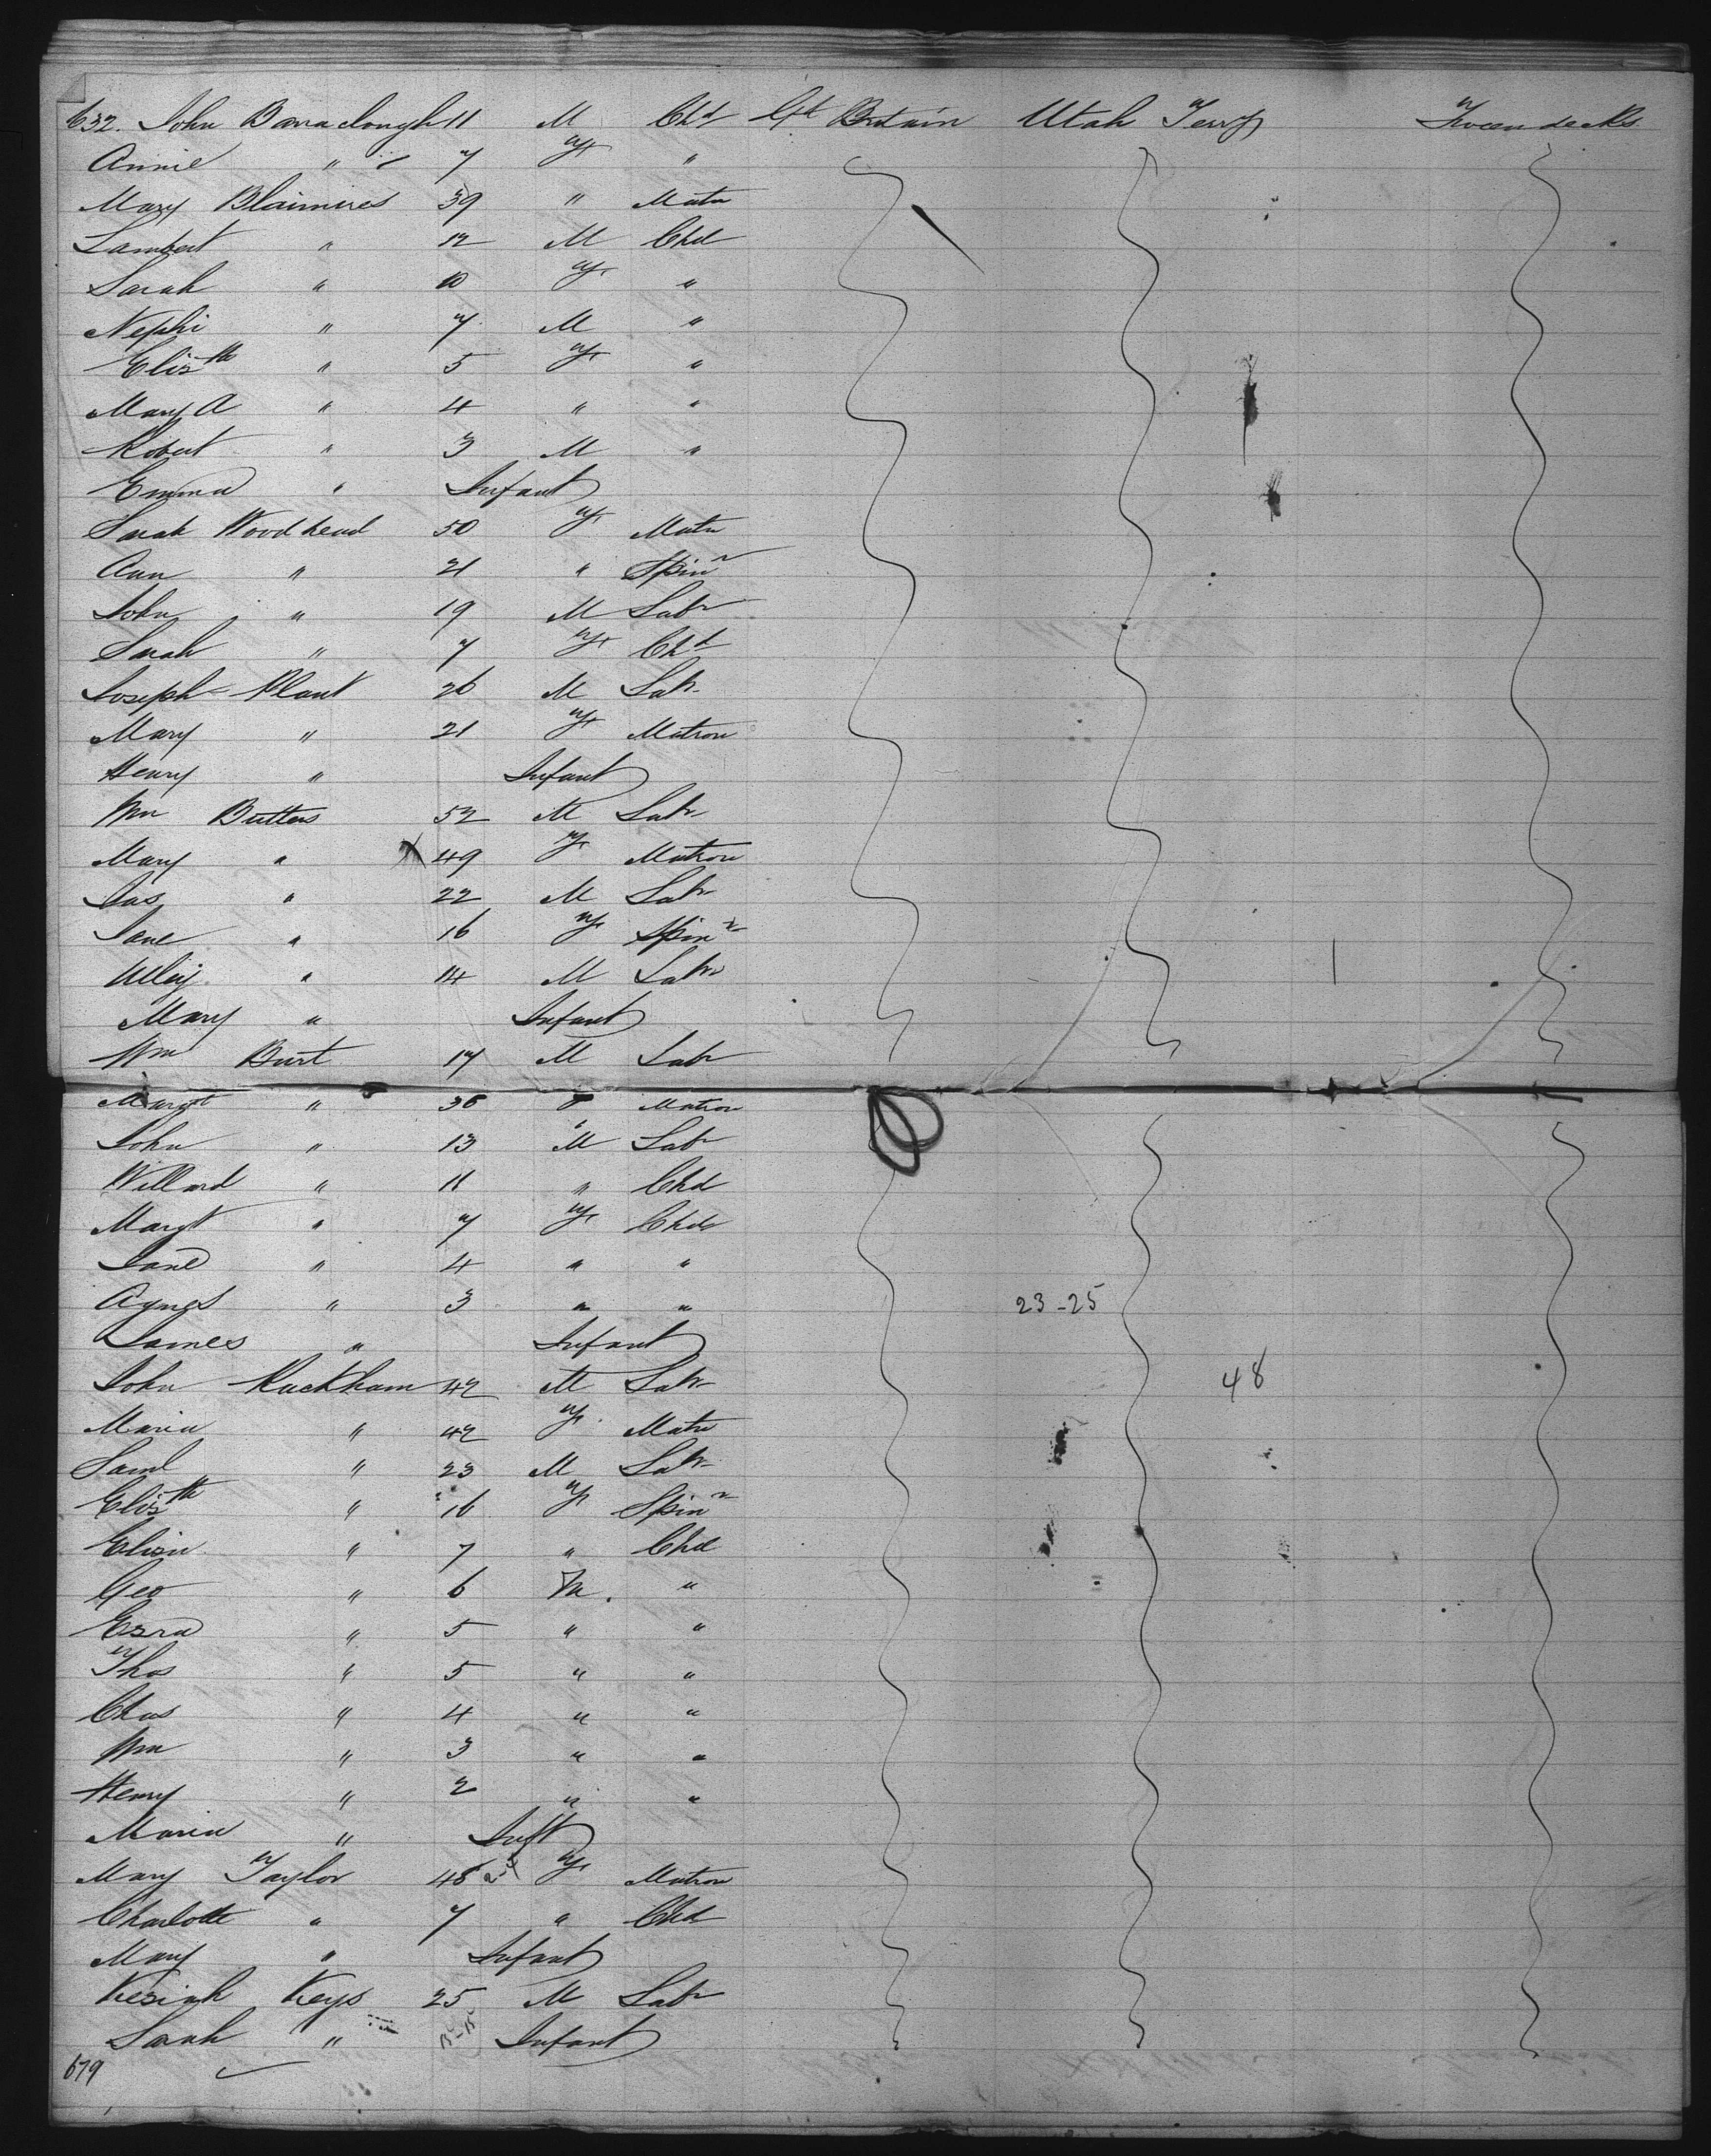 632. John Barraclough 11 M Chd Gt Britain Utah Terry Tweendecks
Annie " 7 F "
Mary Blaimires 39 " Matn
Lambert " 12 M Chd
Sarah " 10 F "
Nephi " 7 M "
Elizth " 5 F "
Mary A " 4 " "
Robert " 3 M "
Emma " Infant
Sarah Woodhead 50 F Matn
Ann " 21 " Spinr
John " 19 M Labr
Sarah " 7 F Chd
Joseph Plant 26 M Labr
Mary " 21 F Matron
Henry " Infant
Wm Butters 52 M Labr
Mary " X 49 F Matron
Jas " 22 M Labr
Jane " 16 F Spinr
" 14 M Labr
Mary " Infant
Wm Burt 17 M Labr
Margt " 36 F Matron
John " 13 M Labr
Willard " 11 " Chd
Margt " 7 F Chd
Jane " 4 " "
Agnes " 3 " " 23-25
James " Infant
John Rackham 42 M Labr 48
Maria " 42 F Matn
Saml " 23 M Labr
Elizth " 16 F Spinr
Eliza " 7 " Chd
Geo " 6 M. "
Ezra " 5 " "
Thos " 5 " "
Chas " 4 " "
Wm " 3 " "
Henry " 2 " "
Maria " Inft
Mary Taylor 48 F Matron
Charlotte " 7 " Chd
Mary " Infant
Keziah Keys 25 M Labr
Sarah " Infant
679